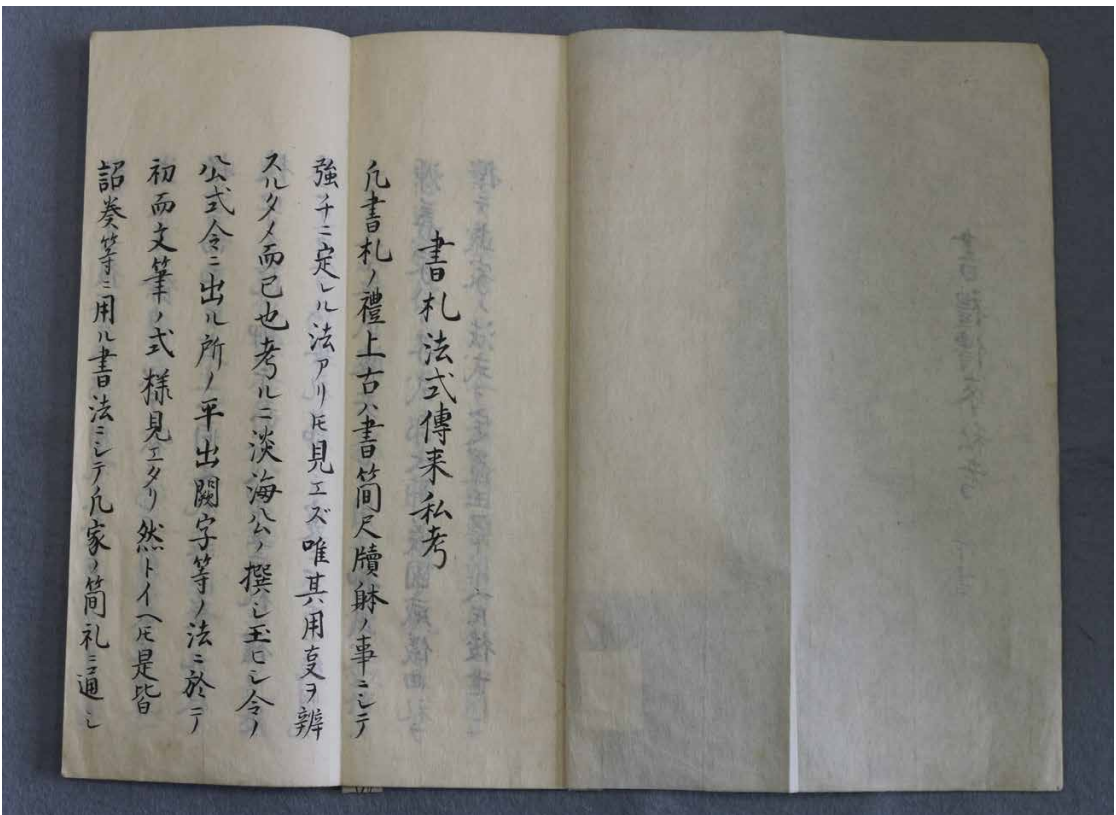 書札法式傳来私考
凡書札ノ禮上古ハ書簡尺牘躰ノ事ニシテ
強チニ定レル法アリ𪜈見エズ唯其用叓ヲ辨
スルタメ而已也考ルニ淡海公ノ撰シ玉ヒシ令ノ
公式令ニ出ル所ノ平出闕字等ノ法ニ於テ
初而文筆ノ式様見エタリ然トイヘ𪜈是皆
詔奏等ニ用ル書法ニシテ凡家ノ簡礼ニ通シ